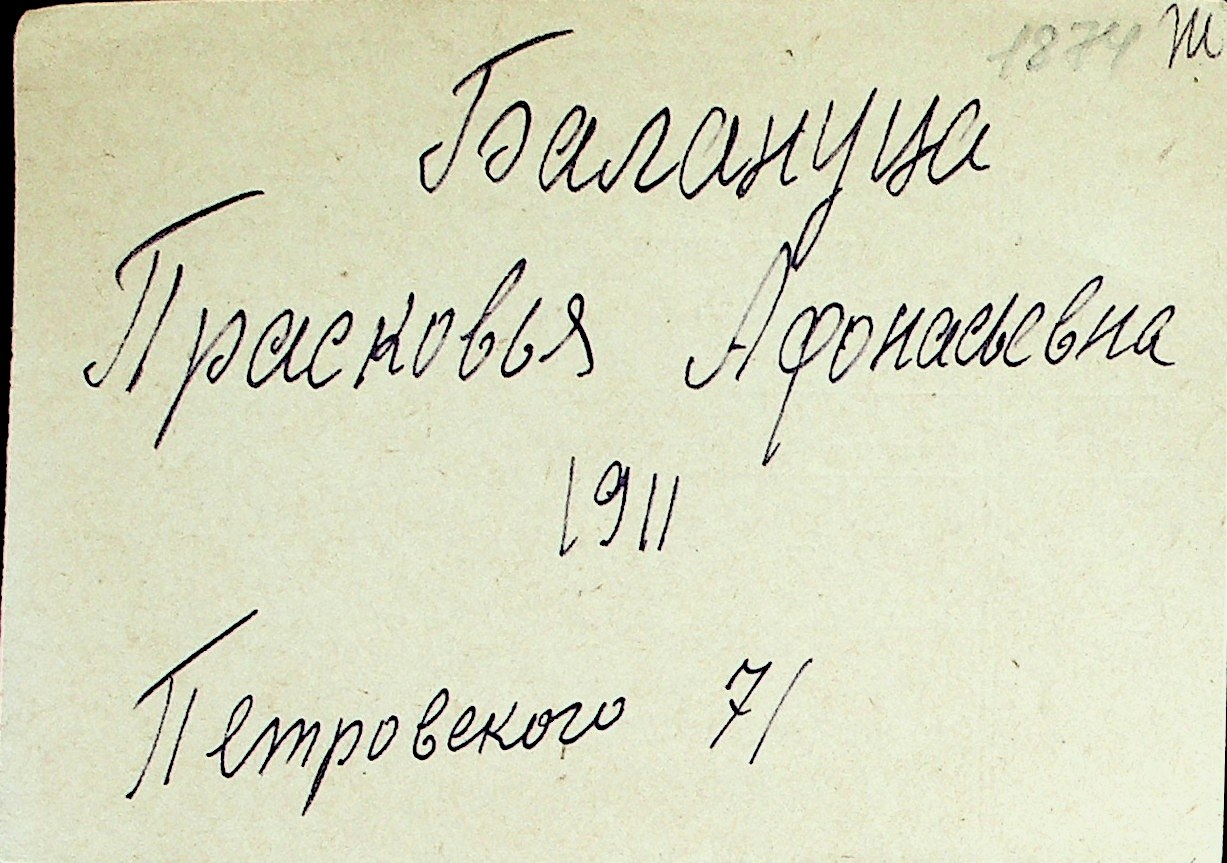 1874 Ж
Балануца
Прасковья Афонасьевна
1911
Петровского 71